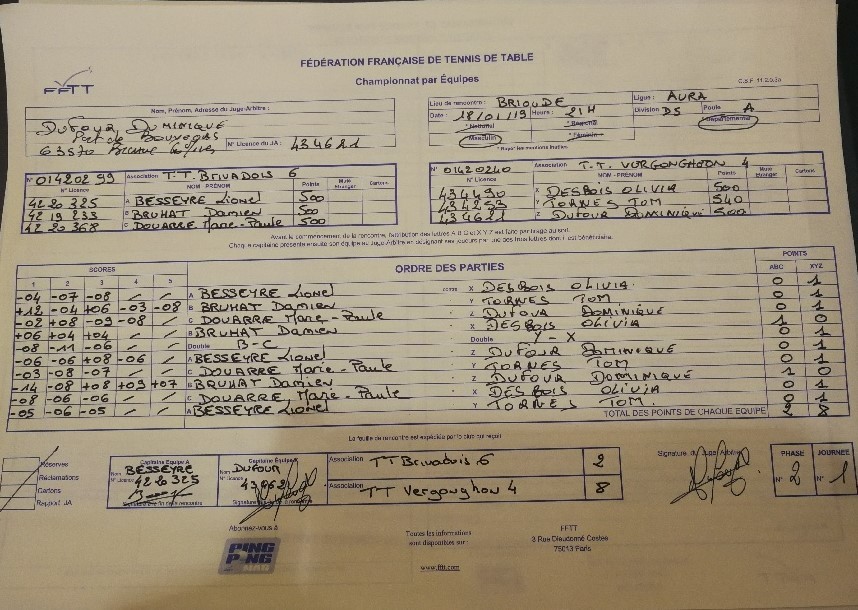 FÉDÉRATION FRANÇAISE DE TENNIS DE TABLE
FFTT
Championnat par Équipes
Nom, Prénom, Adresse du Juge-Arbitre :
DUFOUR DOMINIQUE
63570
N° Licence du JA : 434621
Lieu de rencontre : BRIOUDE
Ligue : AURA
Date : 18/01/19 Heure : 21H
Division D5 Poule A
* National * Régional * Départemental
* Masculin * Féminin
* Rayer les mentions inutiles
N° 01420299 Association T.T. BRIVADOIS 6
N° Licence NOM - PRÉNOM Points Muté Etranger Cartons
4220325 A BESSEYRE Lionel 500
4219233 B BRUHAT Damien 500
4220368 C DOUARRE Marie-Paule 500
N° 01420240 Association T.T. VERGONGHEON 4
N° Licence NOM - PRÉNOM Points Muté Etranger Cartons
434490 X DESBOIS OLIVIA 500
434293 Y TORNES TOM 540
434621 Z DUFOUR DOMINIQUE 500
Avant le commencement de la rencontre, l'attribution des lettres A B C et X Y Z est faite par tirage au sort.
Chaque capitaine présente ensuite son équipe au Juge-Arbitre en désignant ses joueurs par une des trois lettres dont il est bénéficiaire.
SCORES ORDRE DES PARTIES POINTS
1 2 3 4 5 ABC XYZ
-04 -07 -08 / / A BESSEYRE Lionel contre X DESBOIS OLIVIA 0 1
+12 -04 +06 -03 -08 B BRUHAT Damien Y TORNES TOM 0 1
-02 +08 -09 -08 / C DOUARRE Marie-Paule Z DUFOUR DOMINIQUE 0 1
+06 +04 +04 / / B BRUHAT Damien X DESBOIS OLIVIA 1 0
-08 -11 -06 / / Double B-C Double Y-X 0 1
-06 -06 +08 -06 / A BESSEYRE Lionel Z DUFOUR DOMINIQUE 0 1
-03 -08 -07 / / C DOUARRE Marie-Paule Y TORNES TOM 0 1
-14 -08 +08 +09 +07 B BRUHAT Damien Z DUFOUR DOMINIQUE 1 0
-08 -06 -06 / / C DOUARRE, Marie-Paule X DESBOIS OLIVIA 0 1
-05 -06 -05 / / A BESSEYRE Lionel Y TORNES TOM. 0 1
TOTAL DES POINTS DE CHAQUE EQUIPE 2 8
La feuille de rencontre est expédiée par le club qui reçoit
Réserves
Réclamations
Cartons
Rapport JA
Capitaine Equipe A
Nom BESSEYRE
N° Licence 4220325
Signature à la fin de la rencontre
Capitaine Equipe
Nom DUFOUR
N° Licence
Association TT Brivadois 6 2
Association TT Vergonghon 4 8
Signature du Juge-Arbitre
PHASE JOURNEE
N° 2 N° 1
Abonnez-vous à
PING PONG MAG
Toutes les informations
sont disponibles sur :
www.fftt.com
FFTT
3 Rue Dieudonné Costes
75013 Paris